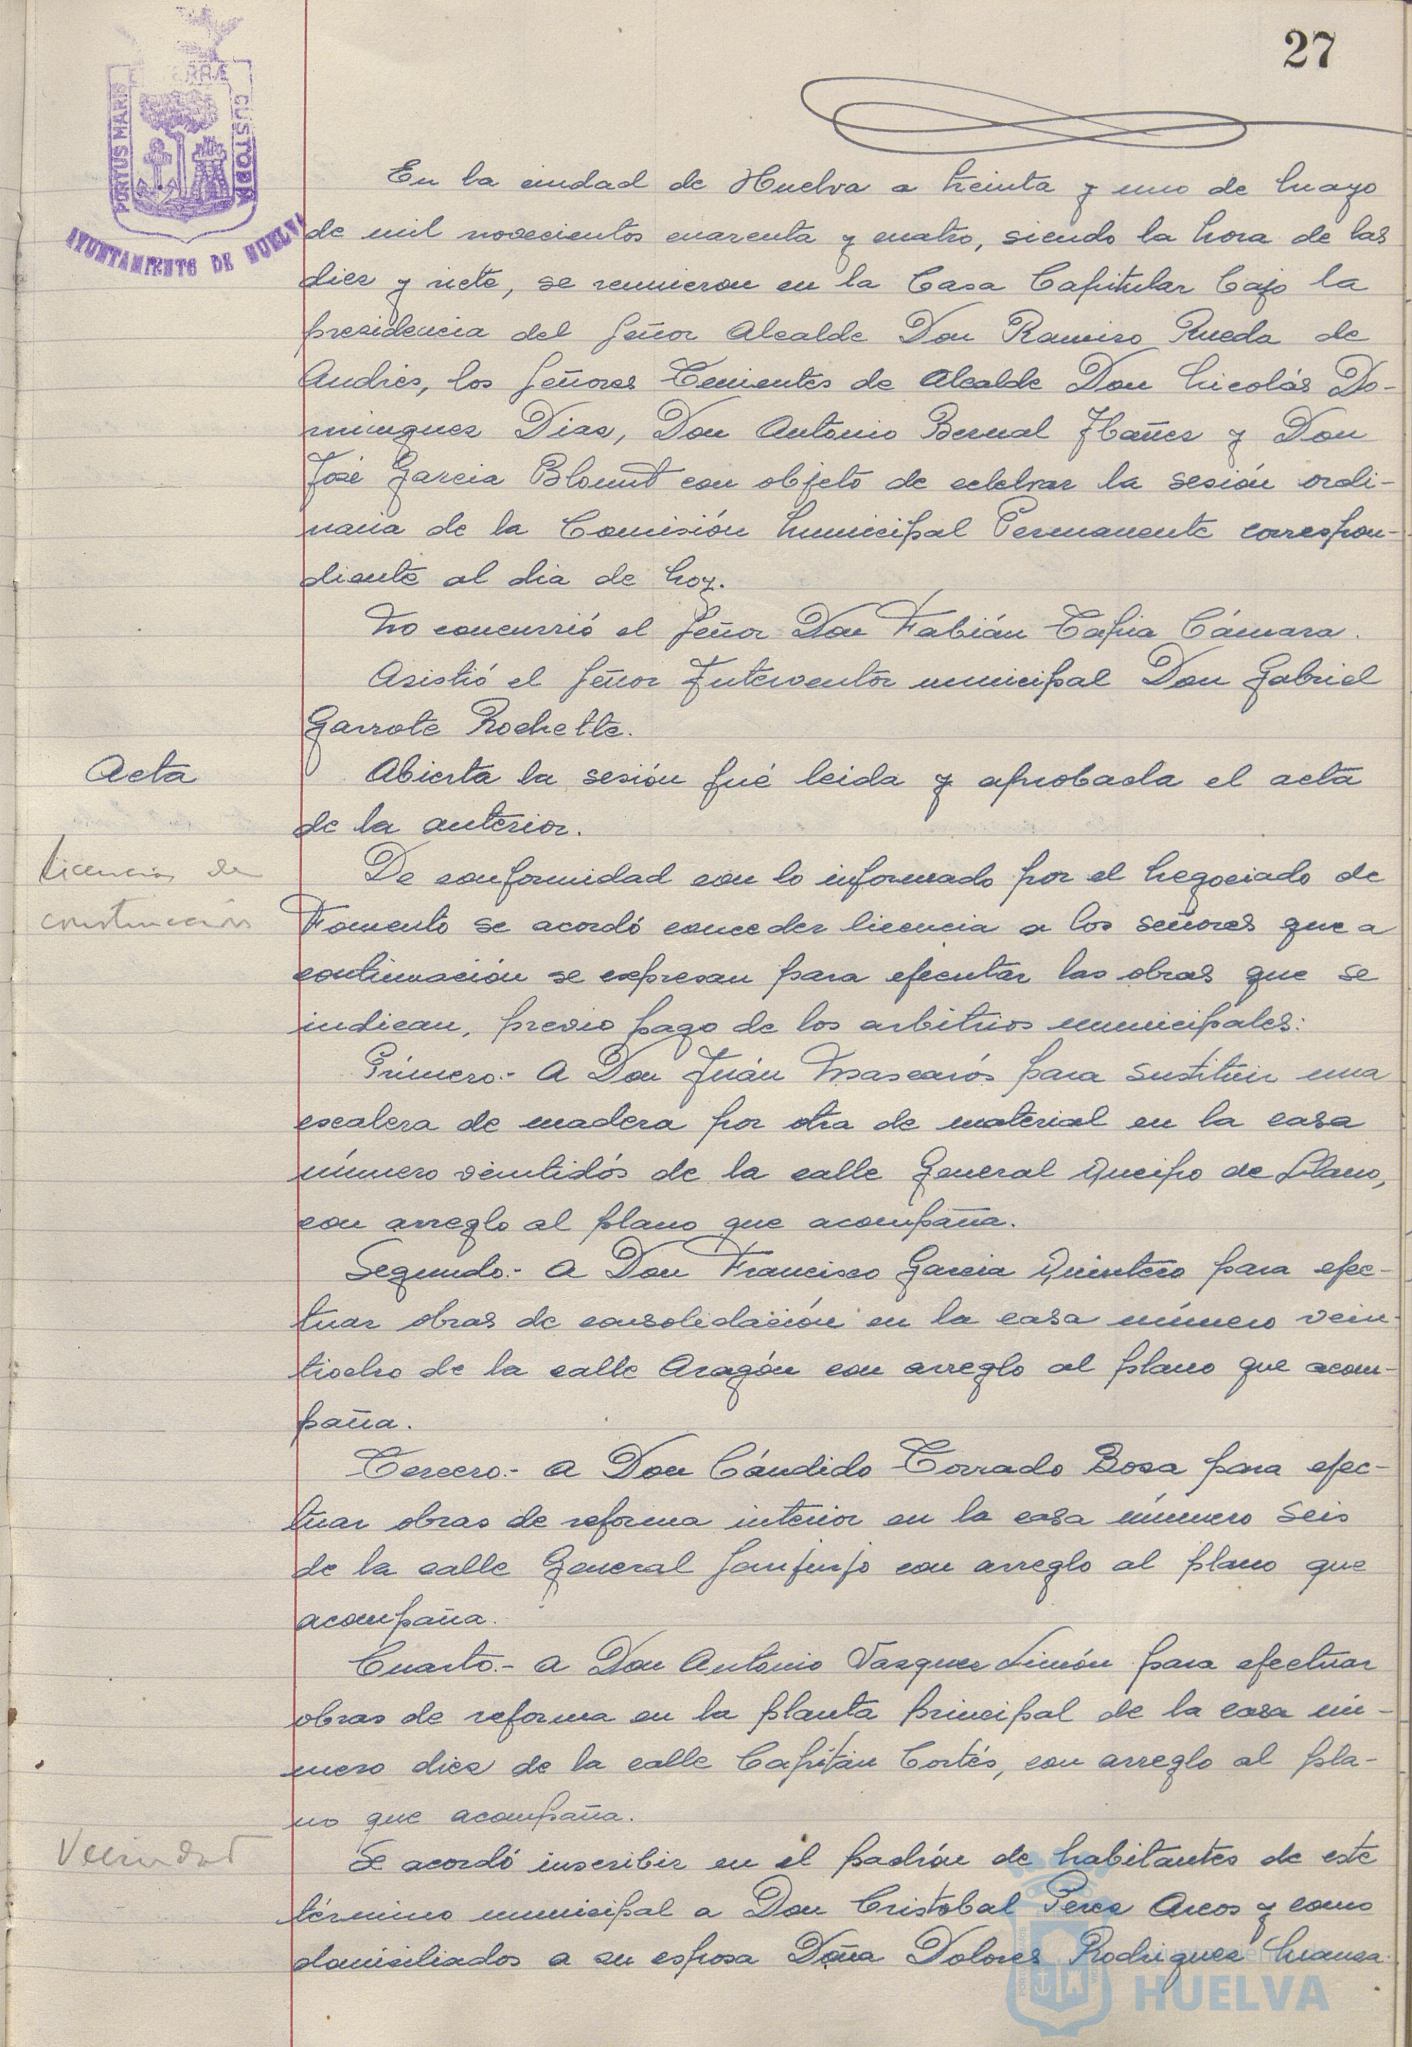 27
PORTUS MARIS ET TERRÆ CUSTODIA
AYUNTAMIENTO DE HUELVA
En la ciudad de Huelva a treinta y uno de Mayo
de mil novecientos cuarenta y cuatro, siendo la hora de las
diez y siete, se reunieron en la Casa Capitular bajo la
presidencia del Señor Alcalde Don Ramiro Rueda de
Andrés, los Señores Tenientes de Alcalde Don Nicolás Do-
minguez Diaz, Don Antonio Bernal Ibañez y Don
José Garcia Blount con objeto de celebrar la sesión ordi-
naria de la Comisión Municipal Permanente correspon-
diente al dia de hoy.
No concurrió el Señor Don Fabián Tapia Cámara.
Asistió el Señor Interventor municipal Don Gabriel
Garrote Rochette.
Acta
Abierta la sesión fué leida y aprobada el acta
de la anterior.
Licencias de
construcción
De conformidad con lo informado por el Negociado de
Fomento se acordó conceder licencia a los señores que a
continuación se expresan para ejecutar las obras que se
indican, previo pago de los arbitrios municipales:
Primero.- A Don Juán Mascarós para sustituir una
escalera de madera por otra de material en la casa
número veintidós de la calle General Queipo de Llano,
con arreglo al plano que acompaña.
Segundo.- A Don Francisco Garcia Quintero para efec-
tuar obras de consolidación en la casa número vein-
tiocho de la calle Aragón con arreglo al plano que acom-
paña.
Tercero.- A Don Cándido Torrado Bosa para efec-
tuar obras de reforma interior en la casa número seis
de la calle General Sanjurjo con arreglo al plano que
acompaña.
Cuarto.- A Don Antonio Vazquez Limón para efectuar
obras de reforma en la planta principal de la casa nú-
mero diez de la calle Capitán Cortés, con arreglo al pla-
no que acompaña.
Vecindad
Se acordó inscribir en el padrón de habitantes de este
término municipal a Don Cristobal Perez Arcos y como
domiciliados a su esposa Doña Dolores Rodriguez
HUELVA